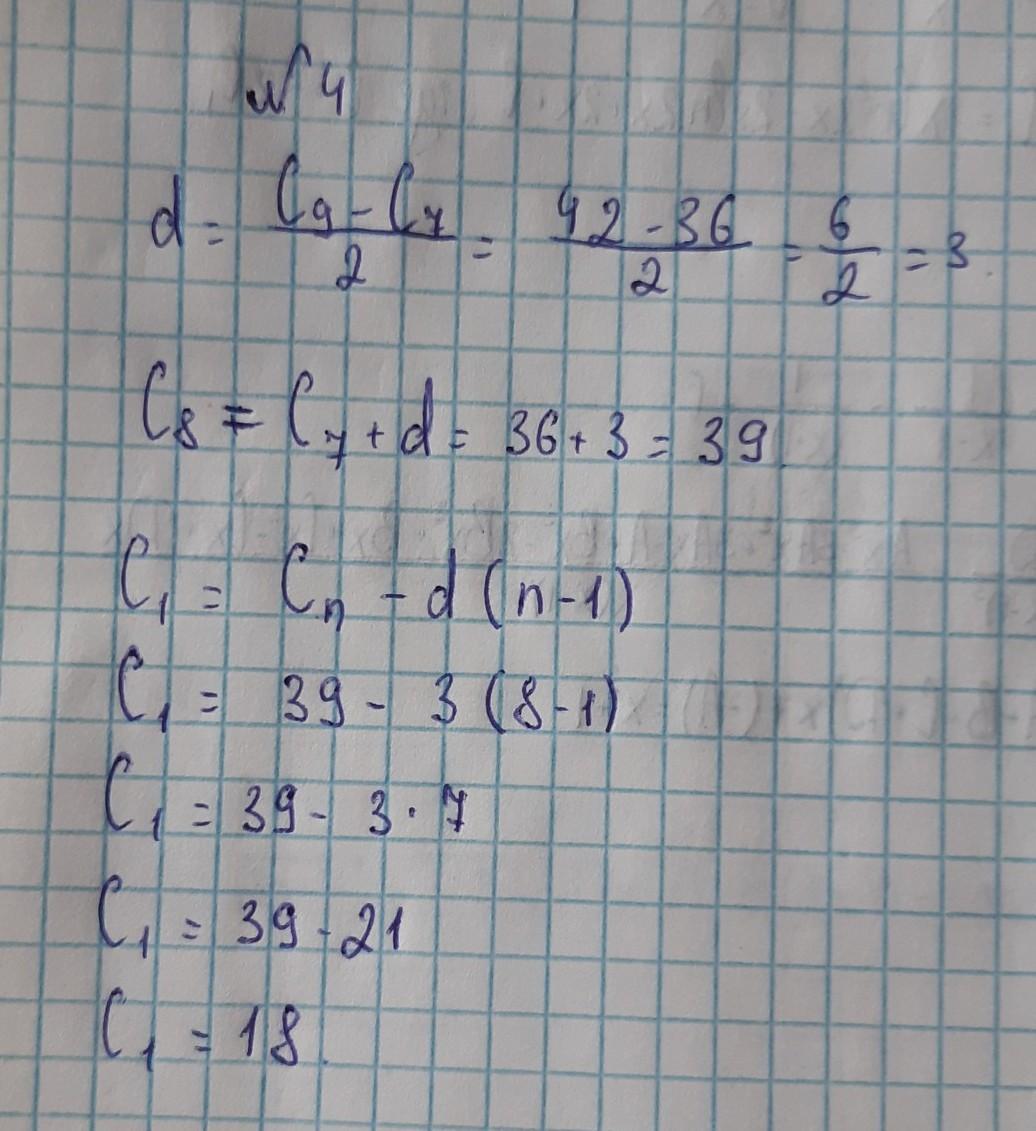 № 4
d = (C₉ - C₇)/2 = (42 - 36)/2 = 6/2 = 3.
C₈ = C₇ + d = 36 + 3 = 39.
C₁ = Cₙ - d (n - 1)
C₁ = 39 - 3 (8 - 1)
C₁ = 39 - 3 · 7
C₁ = 39 - 21
C₁ = 18.